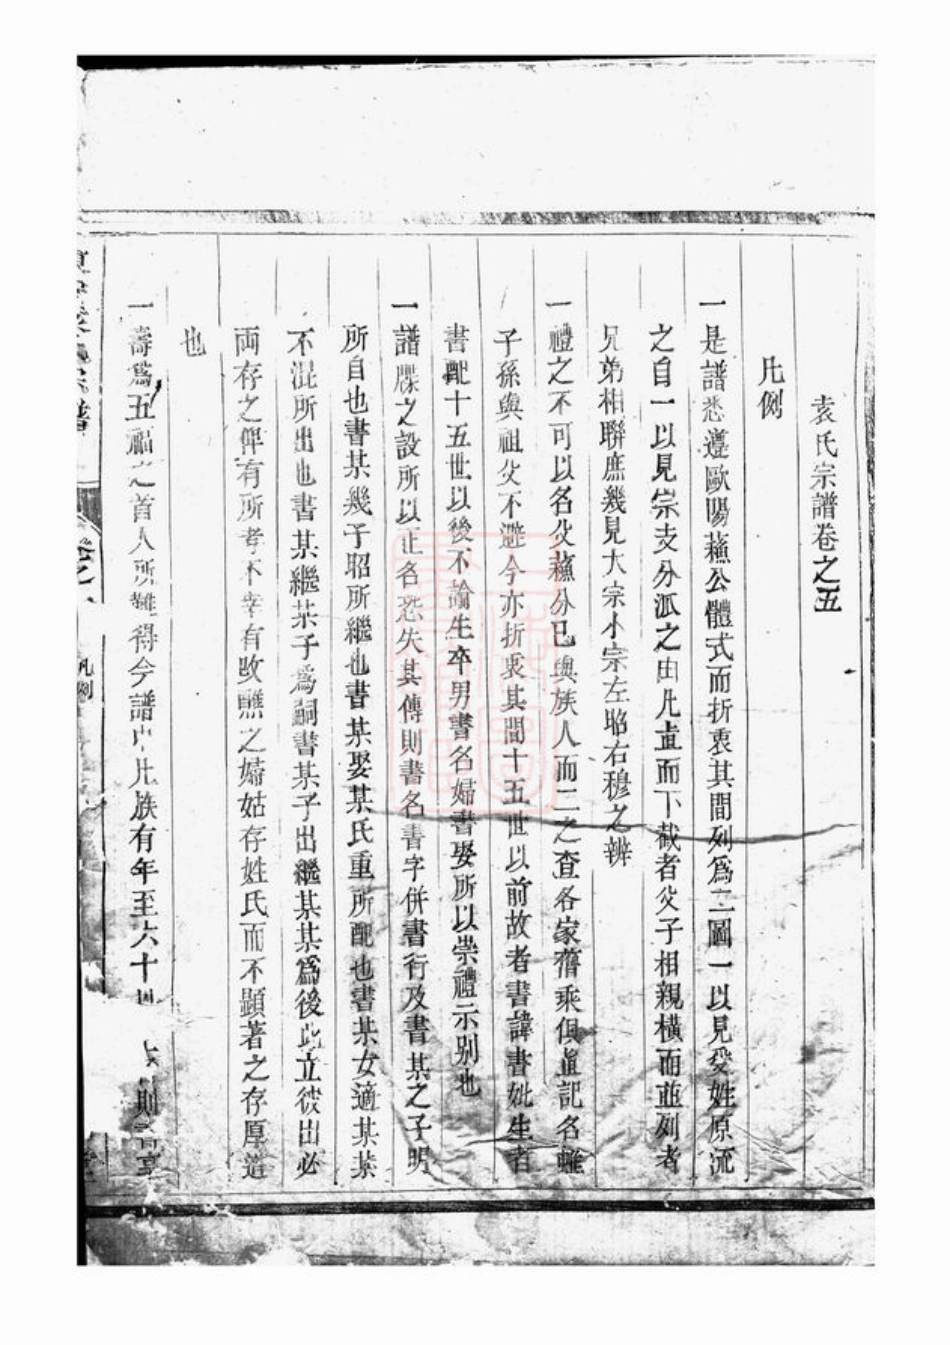 袁氏宗譜卷之五
凡例
一是譜悉遵歐陽蘇公體式而折衷其間列爲二圖一以見受姓原流
之自一以見宗支分派之由凡直而下截者父子相親橫而並列者
兄弟相聯庶幾見大宗小宗左昭右穆之辨
一禮之不可以名父蘇分已與族人而二之查各家舊乘俱直記名雖
子孫與祖父不避今亦折衷其間十五世以前故者書諱書妣生者
書配十五世以後不論生卒男書名婦書娶所以崇禮示别也
一譜牒之設所以正名恐失其傳則書名書字併書行及書某之子明
所自也書某幾子昭所繼也書某娶某氏重所配也書某女適某某
不混所出也書某繼某子爲嗣書某子出繼某某爲後此立彼出必
両存之俾有所考不幸有改醮之婦姑存姓氏而不顯著之存厚道
也
一壽爲五福之首人所難得今譜中凡族有年至六十
凡例